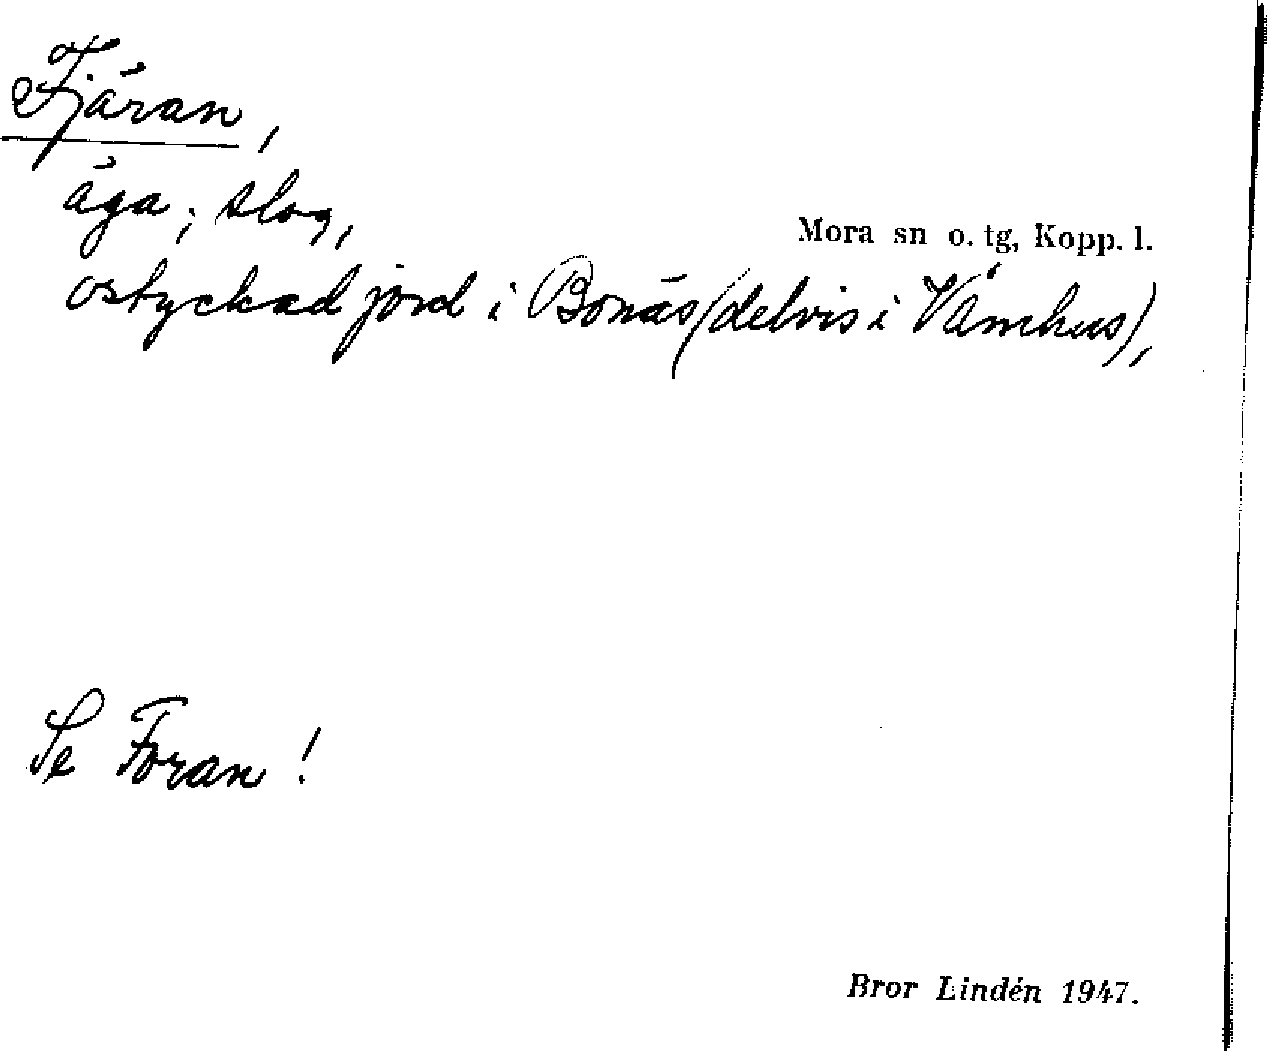 Fjäran,
äga; slog,
Mora sn o. tg, Kopp. l.
ostyckad jord i Bonäs (delvis i Våmhus),
Se Foran!
Bror Lindén 1947.